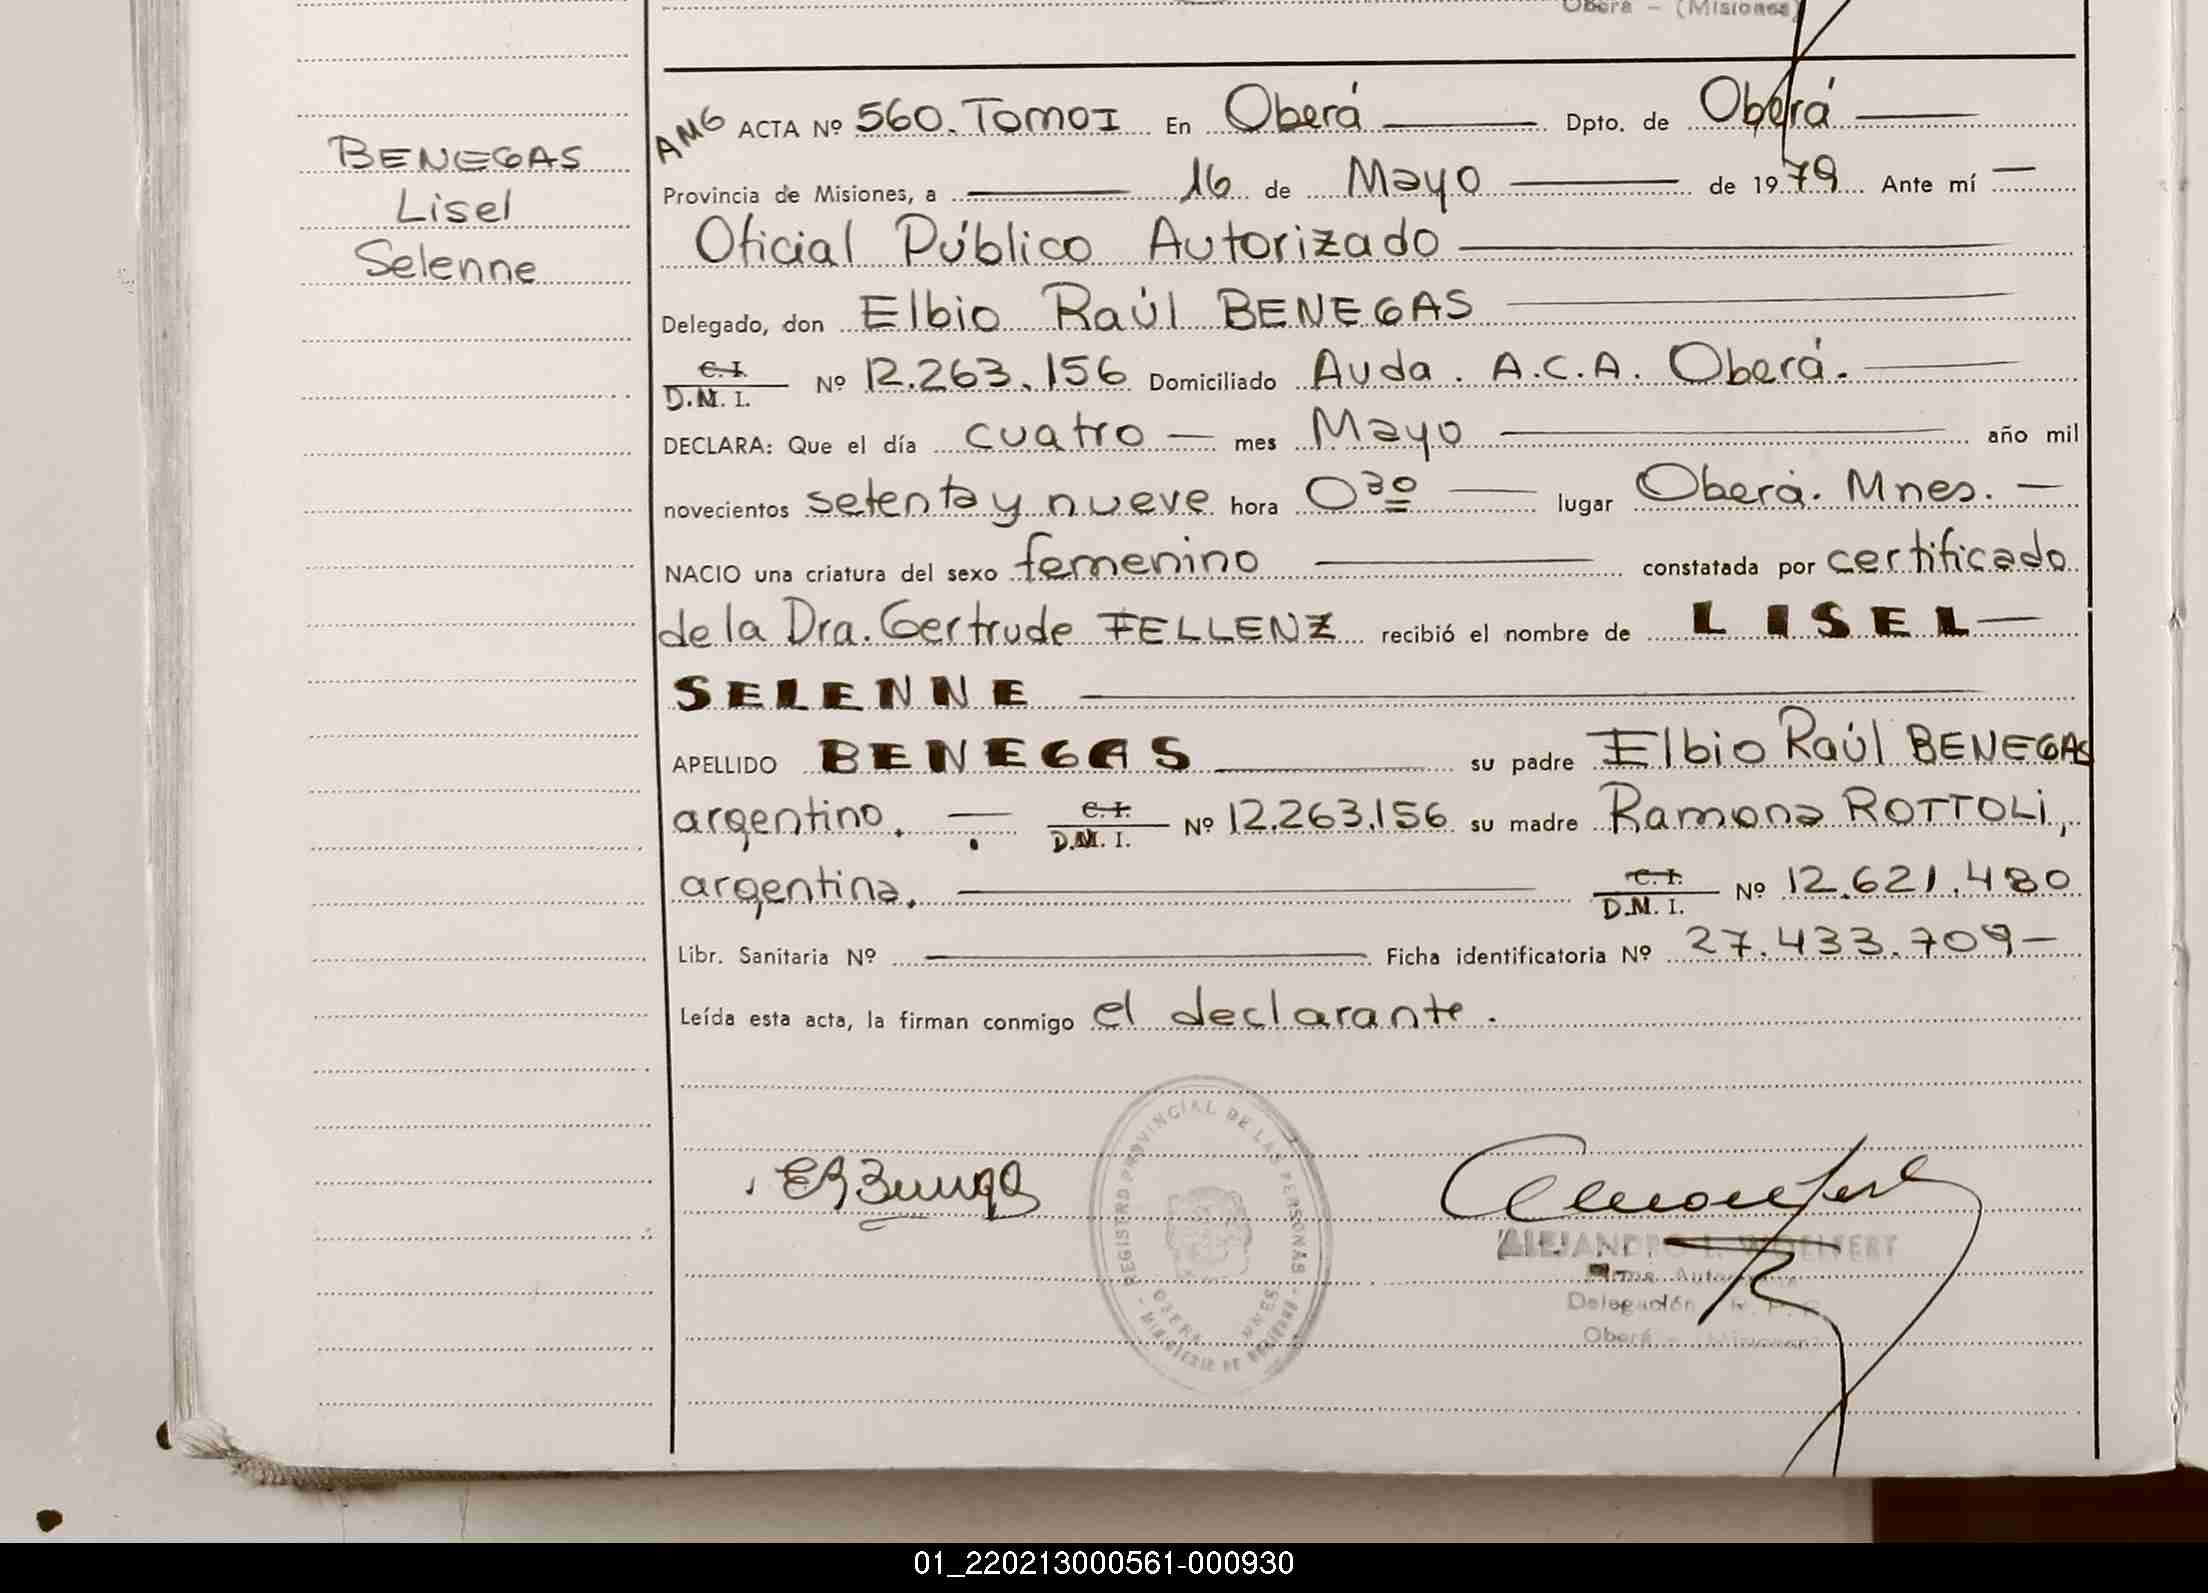 Oberá - (Misiones)
BENEGAS
Lisel
Selenne
AMG ACTA Nº 560. Tomo I En Oberá Dpto. de Oberá
Provincia de Misiones, a 16 de Mayo de 1979 Ante mí
Oficial Público Autorizado
Delegado, don Elbio Raúl BENEGAS
C. I.
D.N. I. Nº 12.263.156 Domiciliado Avda. A.C.A. Oberá.
DECLARA: Que el día cuatro mes Mayo año mil
novecientos setenta y nueve hora 0³⁰ lugar Oberá. Mnes.
NACIO una criatura del sexo femenino constatada por certificado
de la Dra. Gertrude FELLENZ recibió el nombre de LISEL
SELENNE
APELLIDO BENEGAS su padre Elbio Raúl BENEGAS
argentino. C. I.
D.N. I. Nº 12.263.156 su madre Ramona ROTTOLI,
argentina. C. I.
D.M. I. Nº 12.621.480
Libr. Sanitaria Nº Ficha identificatoria Nº 27.433.709-
Leída esta acta, la firman conmigo el declarante.
REGISTRO PROVINCIAL DE LAS PERSONAS
OBERA MNES
ALEJANDRO L. WOELFERT
Firma Autorizada
Delegación R. P. P.
Oberá - (Misiones)
01_220213000561-000930